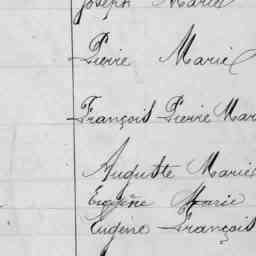 Joseph Marie
Pierre Marie
François Pierre Mar
Auguste Marie
Eugène Marie
Eugène François